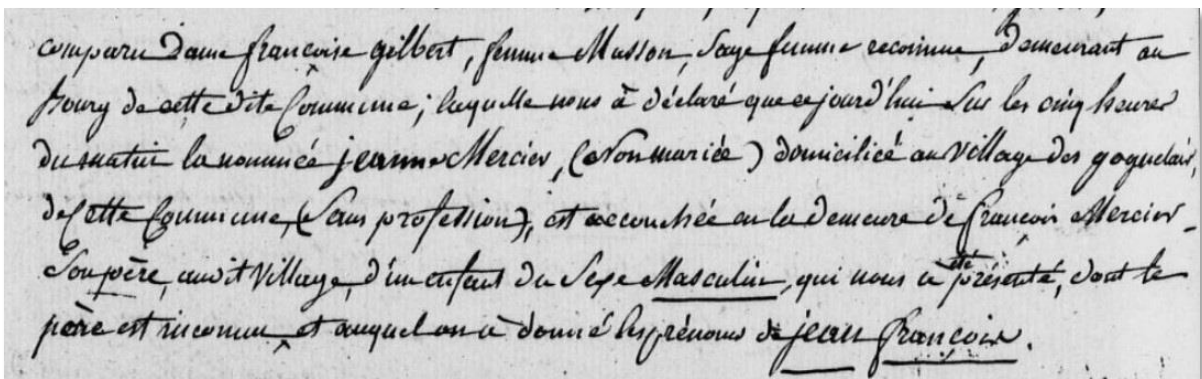 comparu Dame françoise gilbert, femme Musson, Sage femme reconnue, Demeurant au
Bourg de cette dite Commune; laquelle nous à déclaré que cejourd'hui Sur les cinq heures
Du matin la nommée jeanne Mercier, (Non mariée) domiciliée au Village des
de Cette Commune, (Sans profession), est accouchée en la demeure de françois Mercier
Son père, audit Village, d'un enfant du Sexe Masculin, qui nous a été présenté, dont le
père est inconnu, et auquel on à donné les prénoms de jean françois.